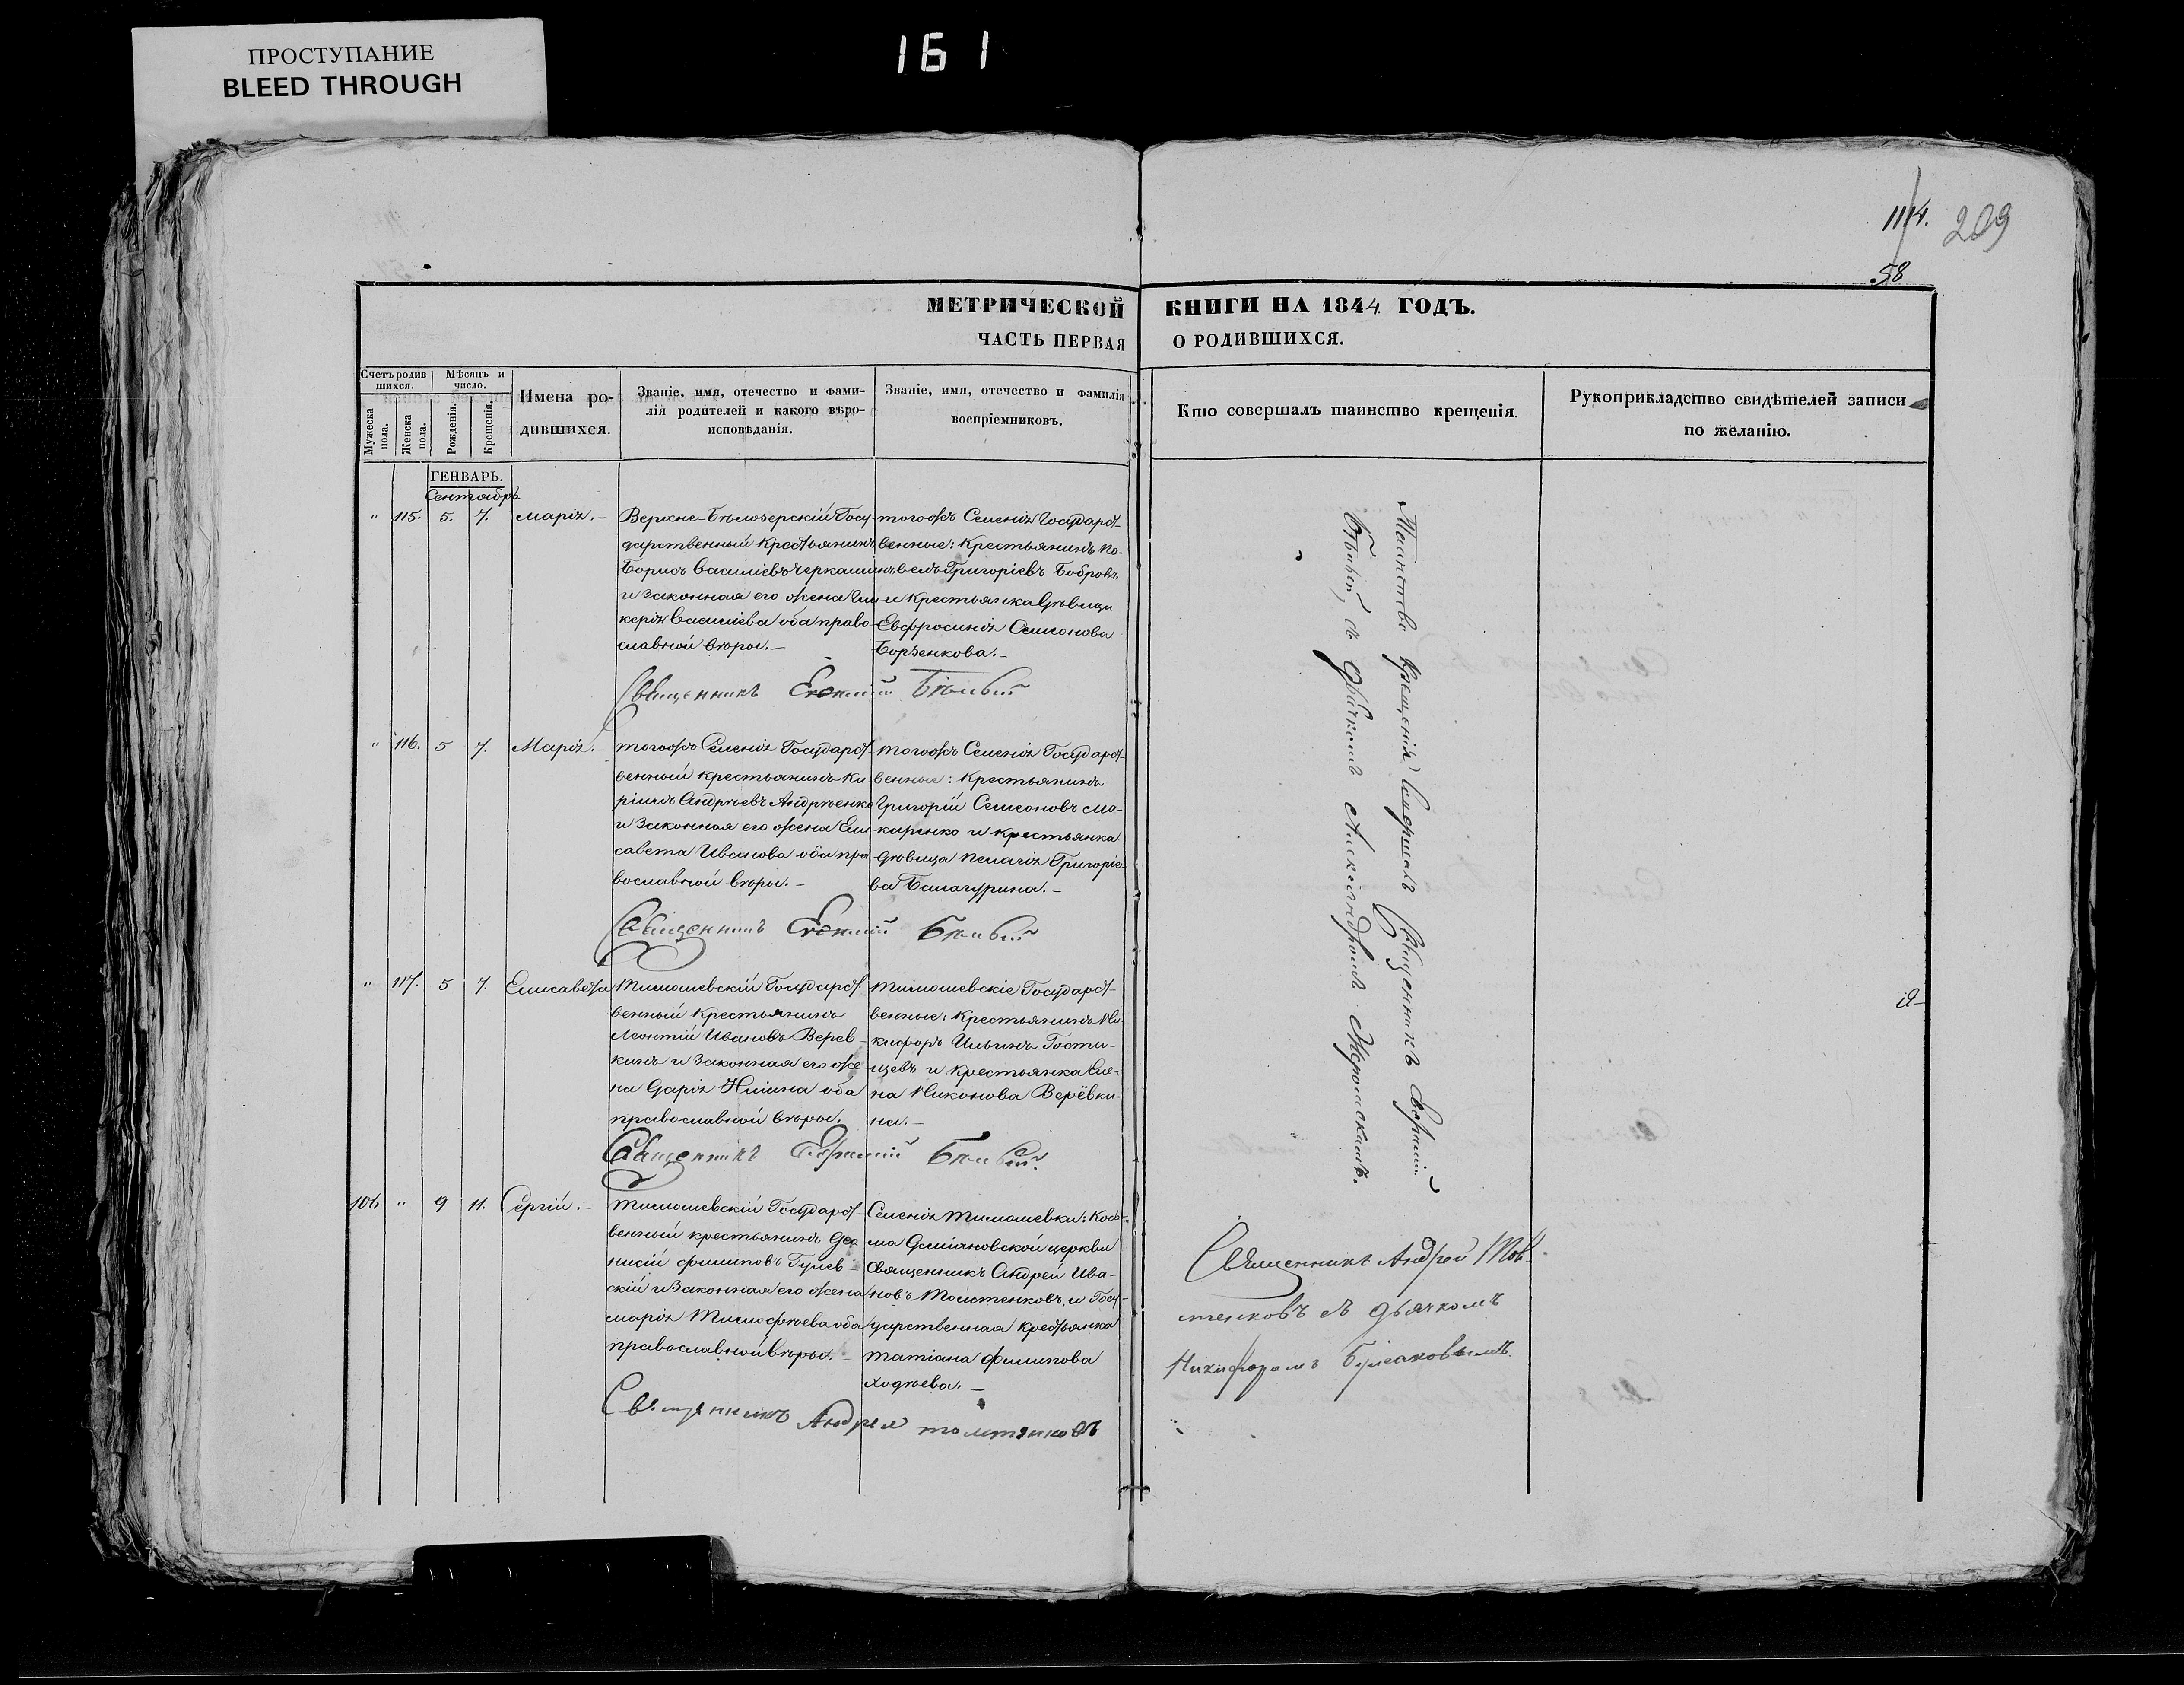 ПРОСТУПАНИЕ
BLEED THROUGH
161
1114.
209
58
МЕТРИЧЕСКОЙ КНИГИ НА 1844 ГОДЪ.
ЧАСТЬ ПЕРВАЯ О РОДИВШИХСЯ.
Счетъ родив
шихся.
Мужеска
пола.
Женска
пола.
Мѣсяцъ и
число.
Рожденія.
Крещенія.
Имена ро-
дившихся.
Званіе, имя, отечество и фами-
лія родителей и какого вѣро-
исповѣданія.
Званіе, имя, отечество и фамилія
воспріемниковъ.
Кто совершалъ таинство крещенія.
Рукоприкладство свидѣтелей записи
по желанію.
ГЕНВАРЬ.
Сентябрь
" 115. 5. 7. Марія.-
Верхне-Бѣлозерскій Госу-
дарственный крестьянинъ
Борисъ Василіевъ Черкашинъ
и законная его жена Гли-
керія Василіева оба право-
славной вѣры.-
тогожъ Селенія Государст-
венные: крестьянинъ Па-
велъ Григоріевъ Бобровъ
и крестьянка дѣвица
Евфросинія Семонова
Борзенкова.-
Священникъ Бѣлый
" 116. 5 7. Марія.-
тогожъ Селенія Государст-
венный крестьянинъ Ки-
рилъ Андрѣевъ Андрѣенко
и законная его жена Ели-
савета Иванова оба пра-
вославной вѣры.-
тогожъ Селенія Государст-
венные: крестьянинъ
Григорій Семсоновъ Ма-
каренко и крестьянка
дѣвица Пелагія Григоріе-
ва Балагурина.-
Священникъ Бѣлый
" 117. 5 7. Елисавета
Тимошевскій Государст-
венный крестьянинъ
Леонтій Ивановъ Верев-
кинъ и законная его же-
на Дарія Иліина оба
православной вѣры.
Тимошевскіе Государст-
венные: крестьянинъ Ни-
кифоръ Ильинъ Гости-
щевъ и крестьянка Еле-
на Никонова Верёвки-
на.-
Священникъ Бѣлый
106 " 9 11. Сергій.-
Тимошевскій Государст-
венный крестьянинъ Део-
нисій Филиповъ Гулев-
скій и законная его жена
Марія Тимофѣева оба
православной вѣры.-
Селенія Тимошевки: Кось-
ма Даміановской церкви
Священникъ Андрей Ива-
новъ Толстенковъ, и Госу-
дарственная крестьянка
Татіана Филипова
Ходѣева.-
Священникъ Андрей Толстенковъ
Таинство крещенія Совершалъ Священникъ
Бѣлый, съ дьячкомъ Александромъ
Священникъ Андрей Тол-
стенковъ съ дьячкомъ
Никифоромъ Булсаковымъ.